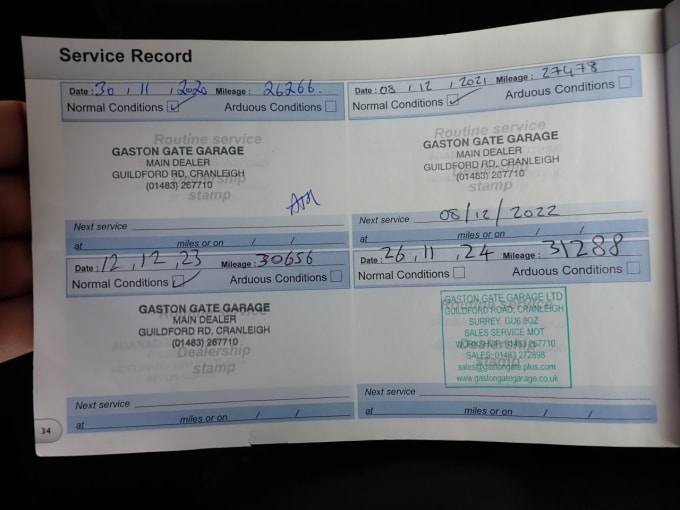 Service Record
Date: 30 / 11 / 2020 Mileage: 26266.
Normal Conditions ☑ Arduous Conditions ☐
Routine service
GASTON GATE GARAGE
MAIN DEALER
GUILDFORD RD, CRANLEIGH
(01483) 267710
Dealership
stamp
Next service
at miles or on / /
Date: 08 / 12 / 2021 Mileage: 27478
Normal Conditions ☑ Arduous Conditions ☐
Routine service
GASTON GATE GARAGE
MAIN DEALER
GUILDFORD RD, CRANLEIGH
(01483) 267710
stamp
Next service 08/12/2022
at miles or on / /
Date: 12, 12, 23 Mileage: 30656
Normal Conditions ☑ Arduous Conditions ☐
GASTON GATE GARAGE
MAIN DEALER
GUILDFORD RD, CRANLEIGH
(01483) 267710
Dealership
stamp
Next service
at miles or on / /
Date: 26, 11, 24 Mileage: 31288
Normal Conditions ☐ Arduous Conditions ☐
GASTON GATE GARAGE LTD
GUILDFORD ROAD, CRANLEIGH
SURREY GU6 8QZ
SALES SERVICE MOT
WORKSHOP: 01483 267710
SALES: 01483 272898
sales@gastongate.plus.com
www.gastongategarage.co.uk
stamp
Next service
at miles or on / /
34